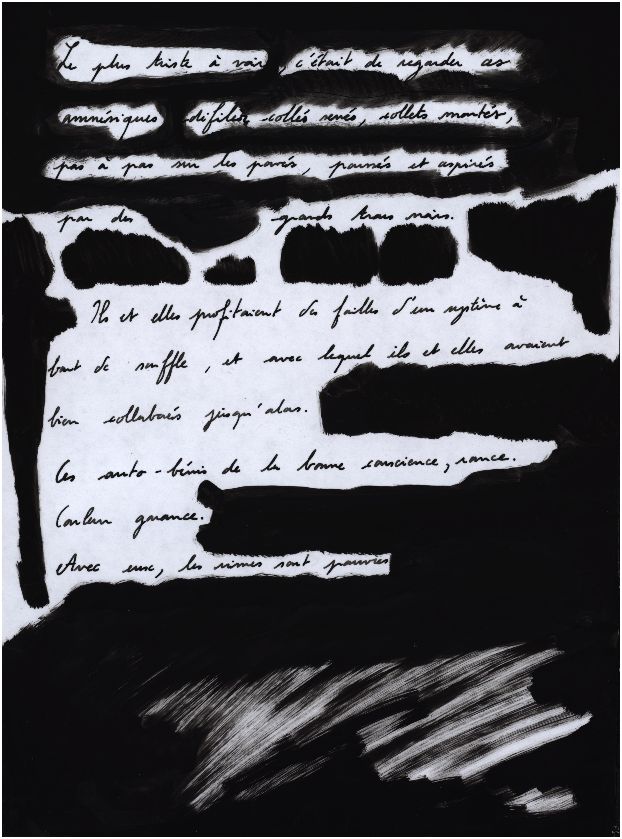 Le plus triste à voir, c'était de regarder ces
amnésiques défiler collés serrés, collets montés,
pas à pas sur les pavés, poussés et aspirés
par des grands trous noirs.
Ils et elles profitaient des failles d'un système à
bout de souffle, et avec lequel ils et elles avaient
bien collaborés jusqu'alors.
Ces auto-bénis de la bonne conscience, rance.
Couleur garance.
Avec eux, les rimes sont pauvres